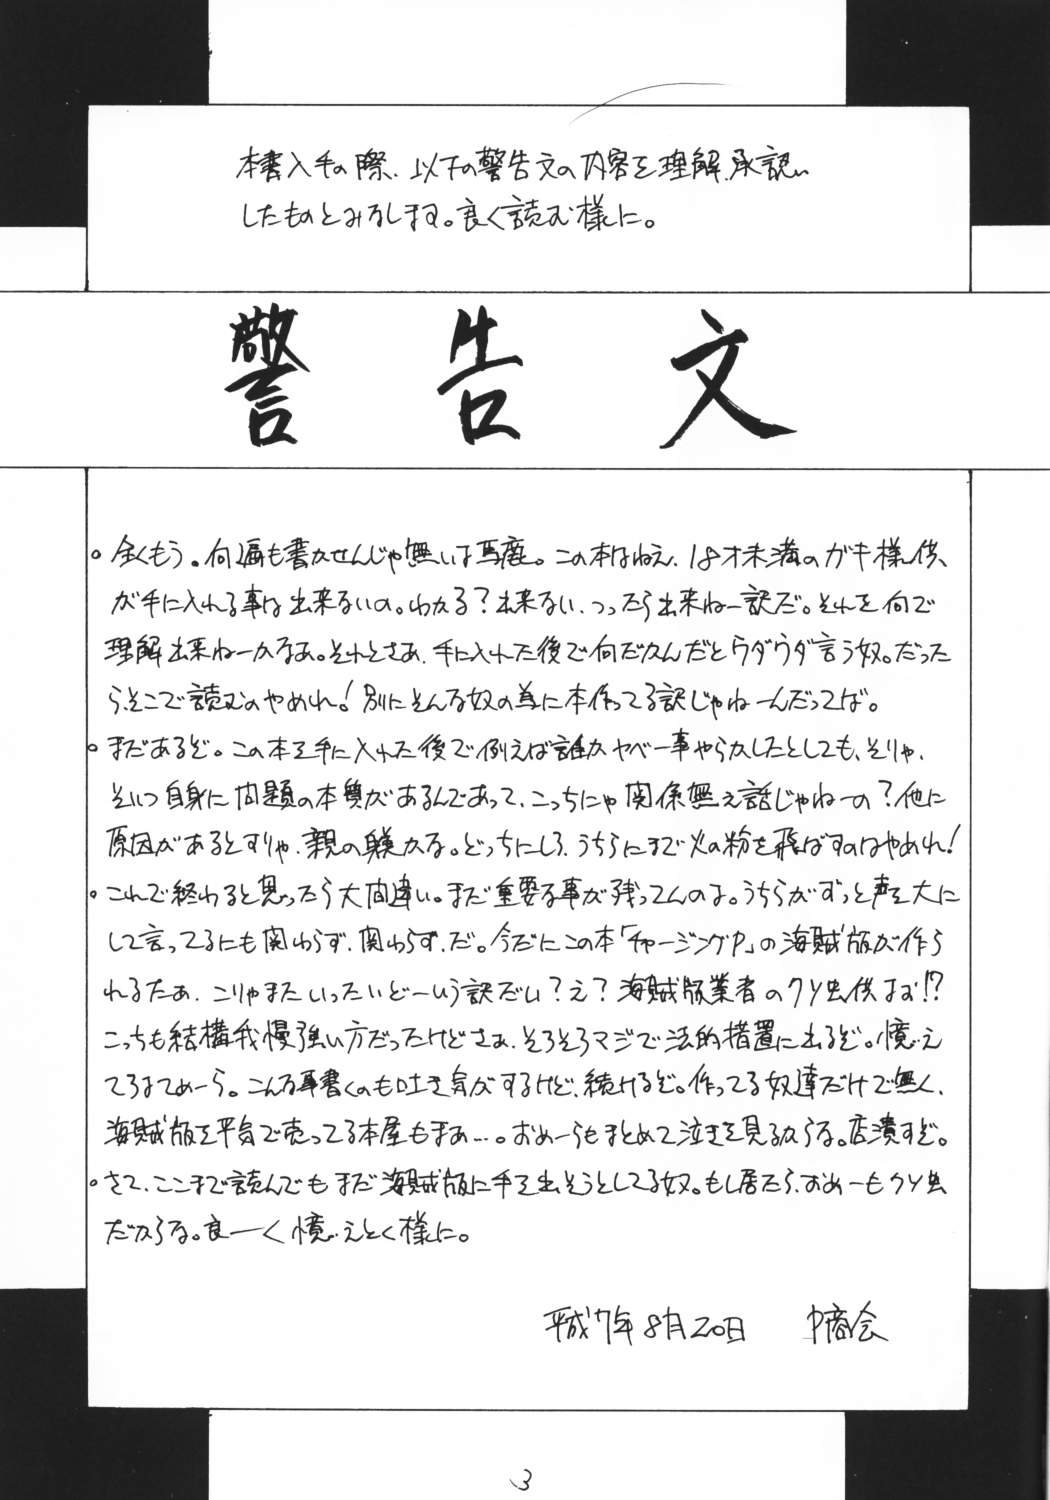 本書入手の際、以下の警告文の内容を理解、承認い
したものとみなします。良く読む様に。
警告文
。全くもう。何遍も書かせんじゃ無いよ馬鹿。この本はねえ、18才未満のガキ様供、
が手に入れる事は出来ないの。わかる?出来ない、つったら出来ねー訳だ。それを何で
理解出来ねーかなあ。それとさあ、手に入れた後で何だかんだとウダウダ言う奴。だった
ら、そこで読むのやめれ!別にそんな奴の為に本作ってる訳じゃねーんだってば。
。まだあるぞ。この本を手に入れた後で例えば誰かヤベー事やらかしたとしても、そりゃ、
そいつ自身に問題の本質があるんであって、こっちにゃ関係無え話じゃねーの?他に
原因があるとすりゃ、親の躾かな。どっちにしろ、うちらにまで火の粉を飛ばすのはやめれ!
。これで終わると思ったら大間違い。まだ重要な事が残ってんのよ。うちらがずっと声を大に
して言ってるにも関わらず、関わらず、だ。今だにこの本「チャージングP」の海賊版が作ら
れるたあ、こりゃまたいったいどーいう訳だい?え?海賊版業者のクソ虫供よお!?
こっちも結構我慢強い方だったけどさあ、そろそろマジで法的措置に出るぞ。憶え
てろよてめーら。こんな事書くのも吐き気がするけど、続けるぞ。作ってる奴達だけで無く、
海賊版を平気で売ってる本屋もまあ…。おめーらもまとめて泣きを見るからな。店潰すぞ。
。さて、ここまで読んでもまだ海賊版に手を出そうとしてる奴。もし居たら、おめーもクソ虫
だからな。良ーく憶えとく様に。
平成7年8月20日 P商会
3